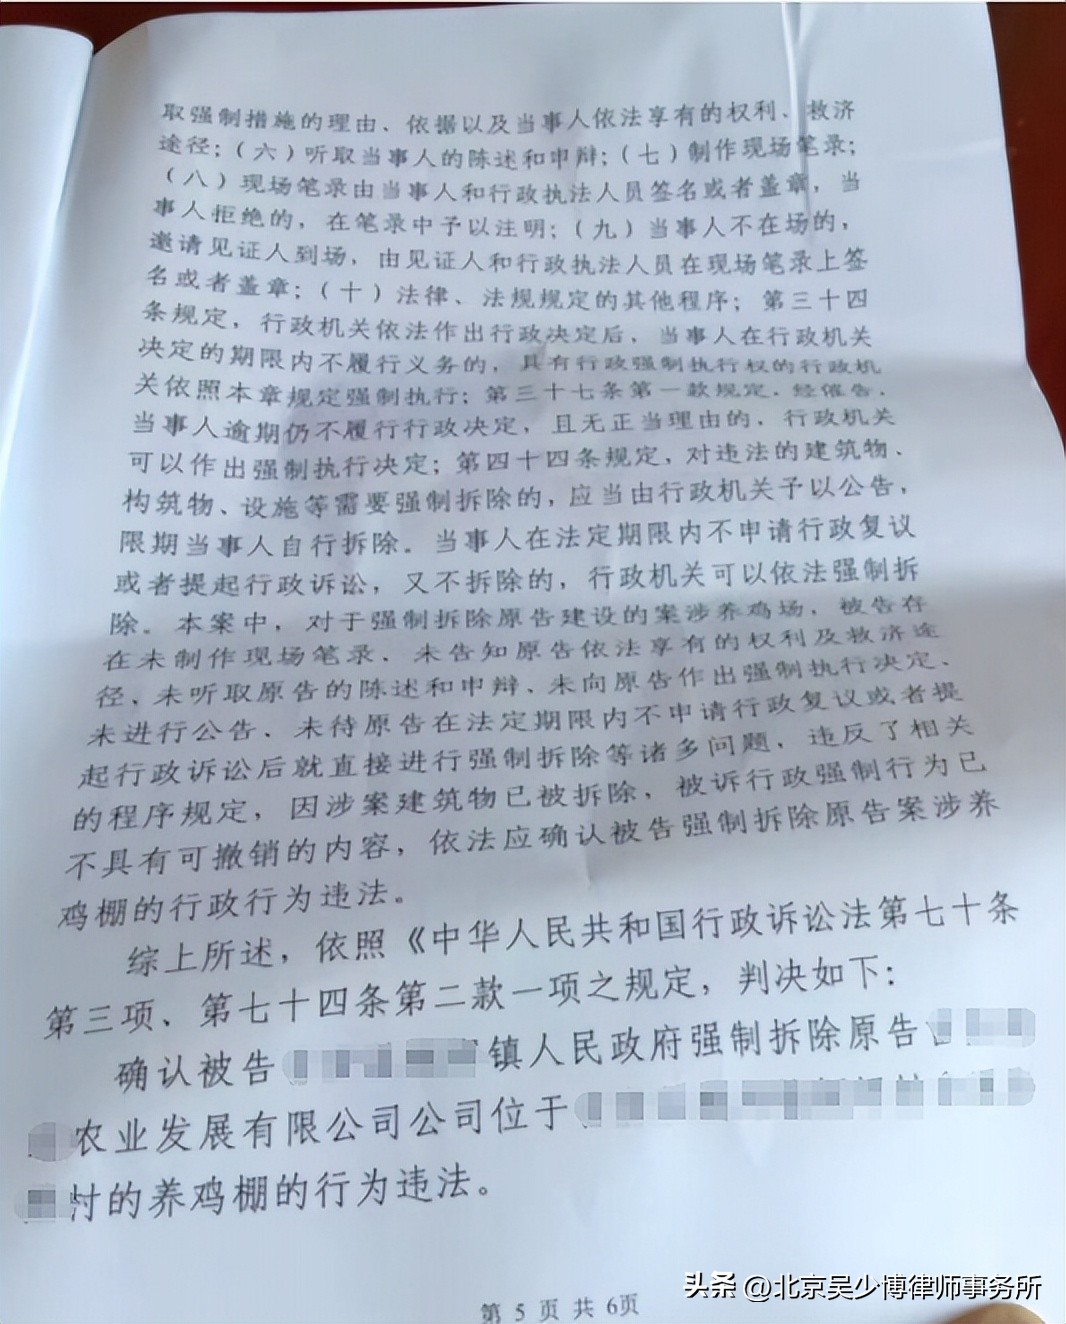 取强制措施的理由、依据以及当事人依法享有的权利、救济
途径；（六）听取当事人的陈述和申辩；（七）制作现场笔录；
（八）现场笔录由当事人和行政执法人员签名或者盖章，当
事人拒绝的，在笔录中予以注明；（九）当事人不在场的，
邀请见证人到场，由见证人和行政执法人员在现场笔录上签
名或者盖章；（十）法律、法规规定的其他程序；第三十四
条规定，行政机关依法作出行政决定后，当事人在行政机关
决定的期限内不履行义务的，具有行政强制执行权的行政机
关依照本章规定强制执行；第三十七条第一款规定，经催告，
当事人逾期仍不履行行政决定，且无正当理由的，行政机关
可以作出强制执行决定；第四十四条规定，对违法的建筑物、
构筑物、设施等需要强制拆除的，应当由行政机关予以公告，
限期当事人自行拆除。当事人在法定期限内不申请行政复议
或者提起行政诉讼，又不拆除的，行政机关可以依法强制拆
除。本案中，对于强制拆除原告建设的案涉养鸡场，被告存
在未制作现场笔录、未告知原告依法享有的权利及救济途
径、未听取原告的陈述和申辩、未向原告作出强制执行决定、
未进行公告、未待原告在法定期限内不申请行政复议或者提
起行政诉讼后就直接进行强制拆除等诸多问题，违反了相关
的程序规定，因涉案建筑物已被拆除，被诉行政强制行为已
不具有可撤销的内容，依法应确认被告强制拆除原告案涉养
鸡棚的行政行为违法。
综上所述，依照《中华人民共和国行政诉讼法第七十条
第三项、第七十四条第二款一项之规定，判决如下：
确认被告镇人民政府强制拆除原告
农业发展有限公司公司位于
村的养鸡棚的行为违法。
第 5 页 共 6页
头条 @北京吴少博律师事务所